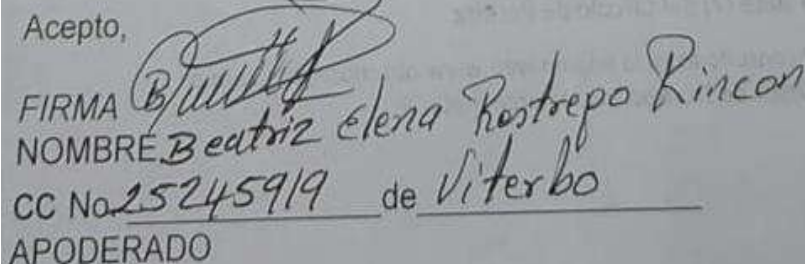 Acepto,
FIRMA
NOMBRE Beatriz Elena Restrepo Rincon
CC No. 25245919 de Viterbo
APODERADO